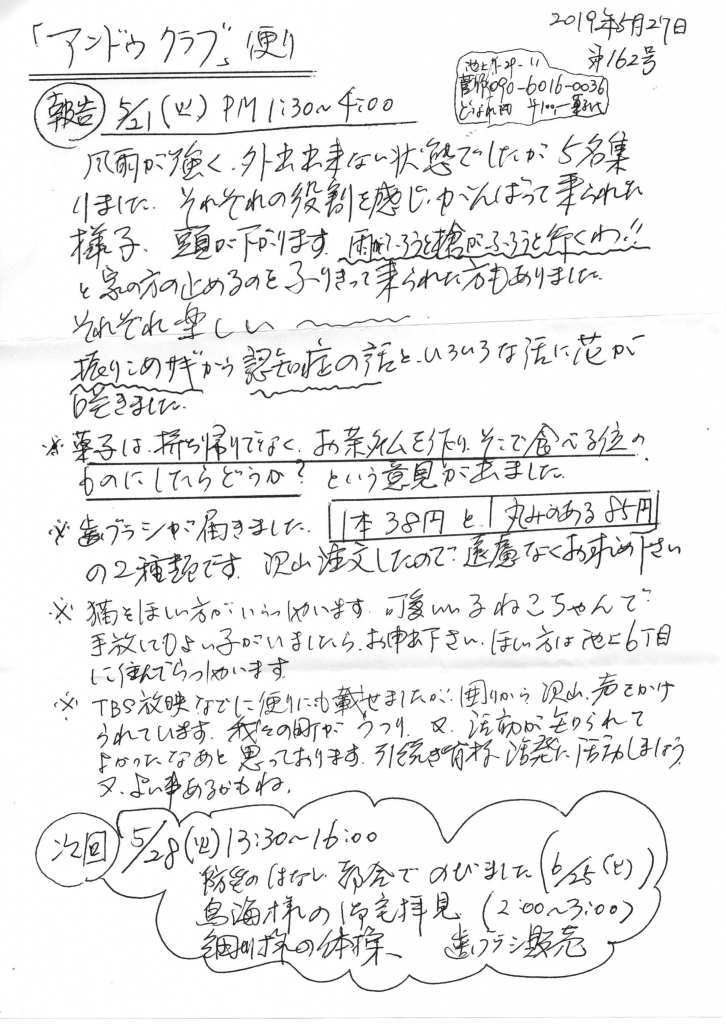 2019年5月27日
「アンドゥクラブ」便り
第162号
池上7-29-11
菅原090-6016-0036
どなたでも可 ¥100,-菓子代
報告 5/21(火) PM1:30~4:00
風雨が強く、外出出来ない状態でしたが5名集
りました。それぞれの役割を感じ、がんばって来られた
様子、頭が下がります。雨がふろうと槍がふろうと行くわ!!
と家の方の止めるのをふりきって来られた方もありました。
それぞれ楽しい
振りこめサギから認知症の話と、いろいろな話に花が
咲きました。
※菓子は、持ち帰りでなく、お茶飲みを作り、そこで食べる位の
ものにしたらどうか?という意見が出ました。
※歯ブラシが届きました。1本38円と1丸みのある85円
の2種類です。沢山注文したので遠慮なくお求め下さい
※猫をほしい方がいらっしゃいます。可愛いい子ねこちゃんで
手放してもよい子がいましたら、お申出下さい。ほしい方は池上6丁目
に住んでらっしゃいます
※TBS放映などに便りにも載せましたが、周りから沢山、声をかけ
られています。我々の町がうつり、又、活動が知られて
よかったなあと思っております。引続き皆様、活発に活動しましょう
又、よい事あるかもね。
次回 5/28(火)13:30~16:00
防災のはなし 都合でのびました(6/25(火))
鳥海様の御宅拝見(2:00~3:00)
細川様の体操、 歯ブラシ販売